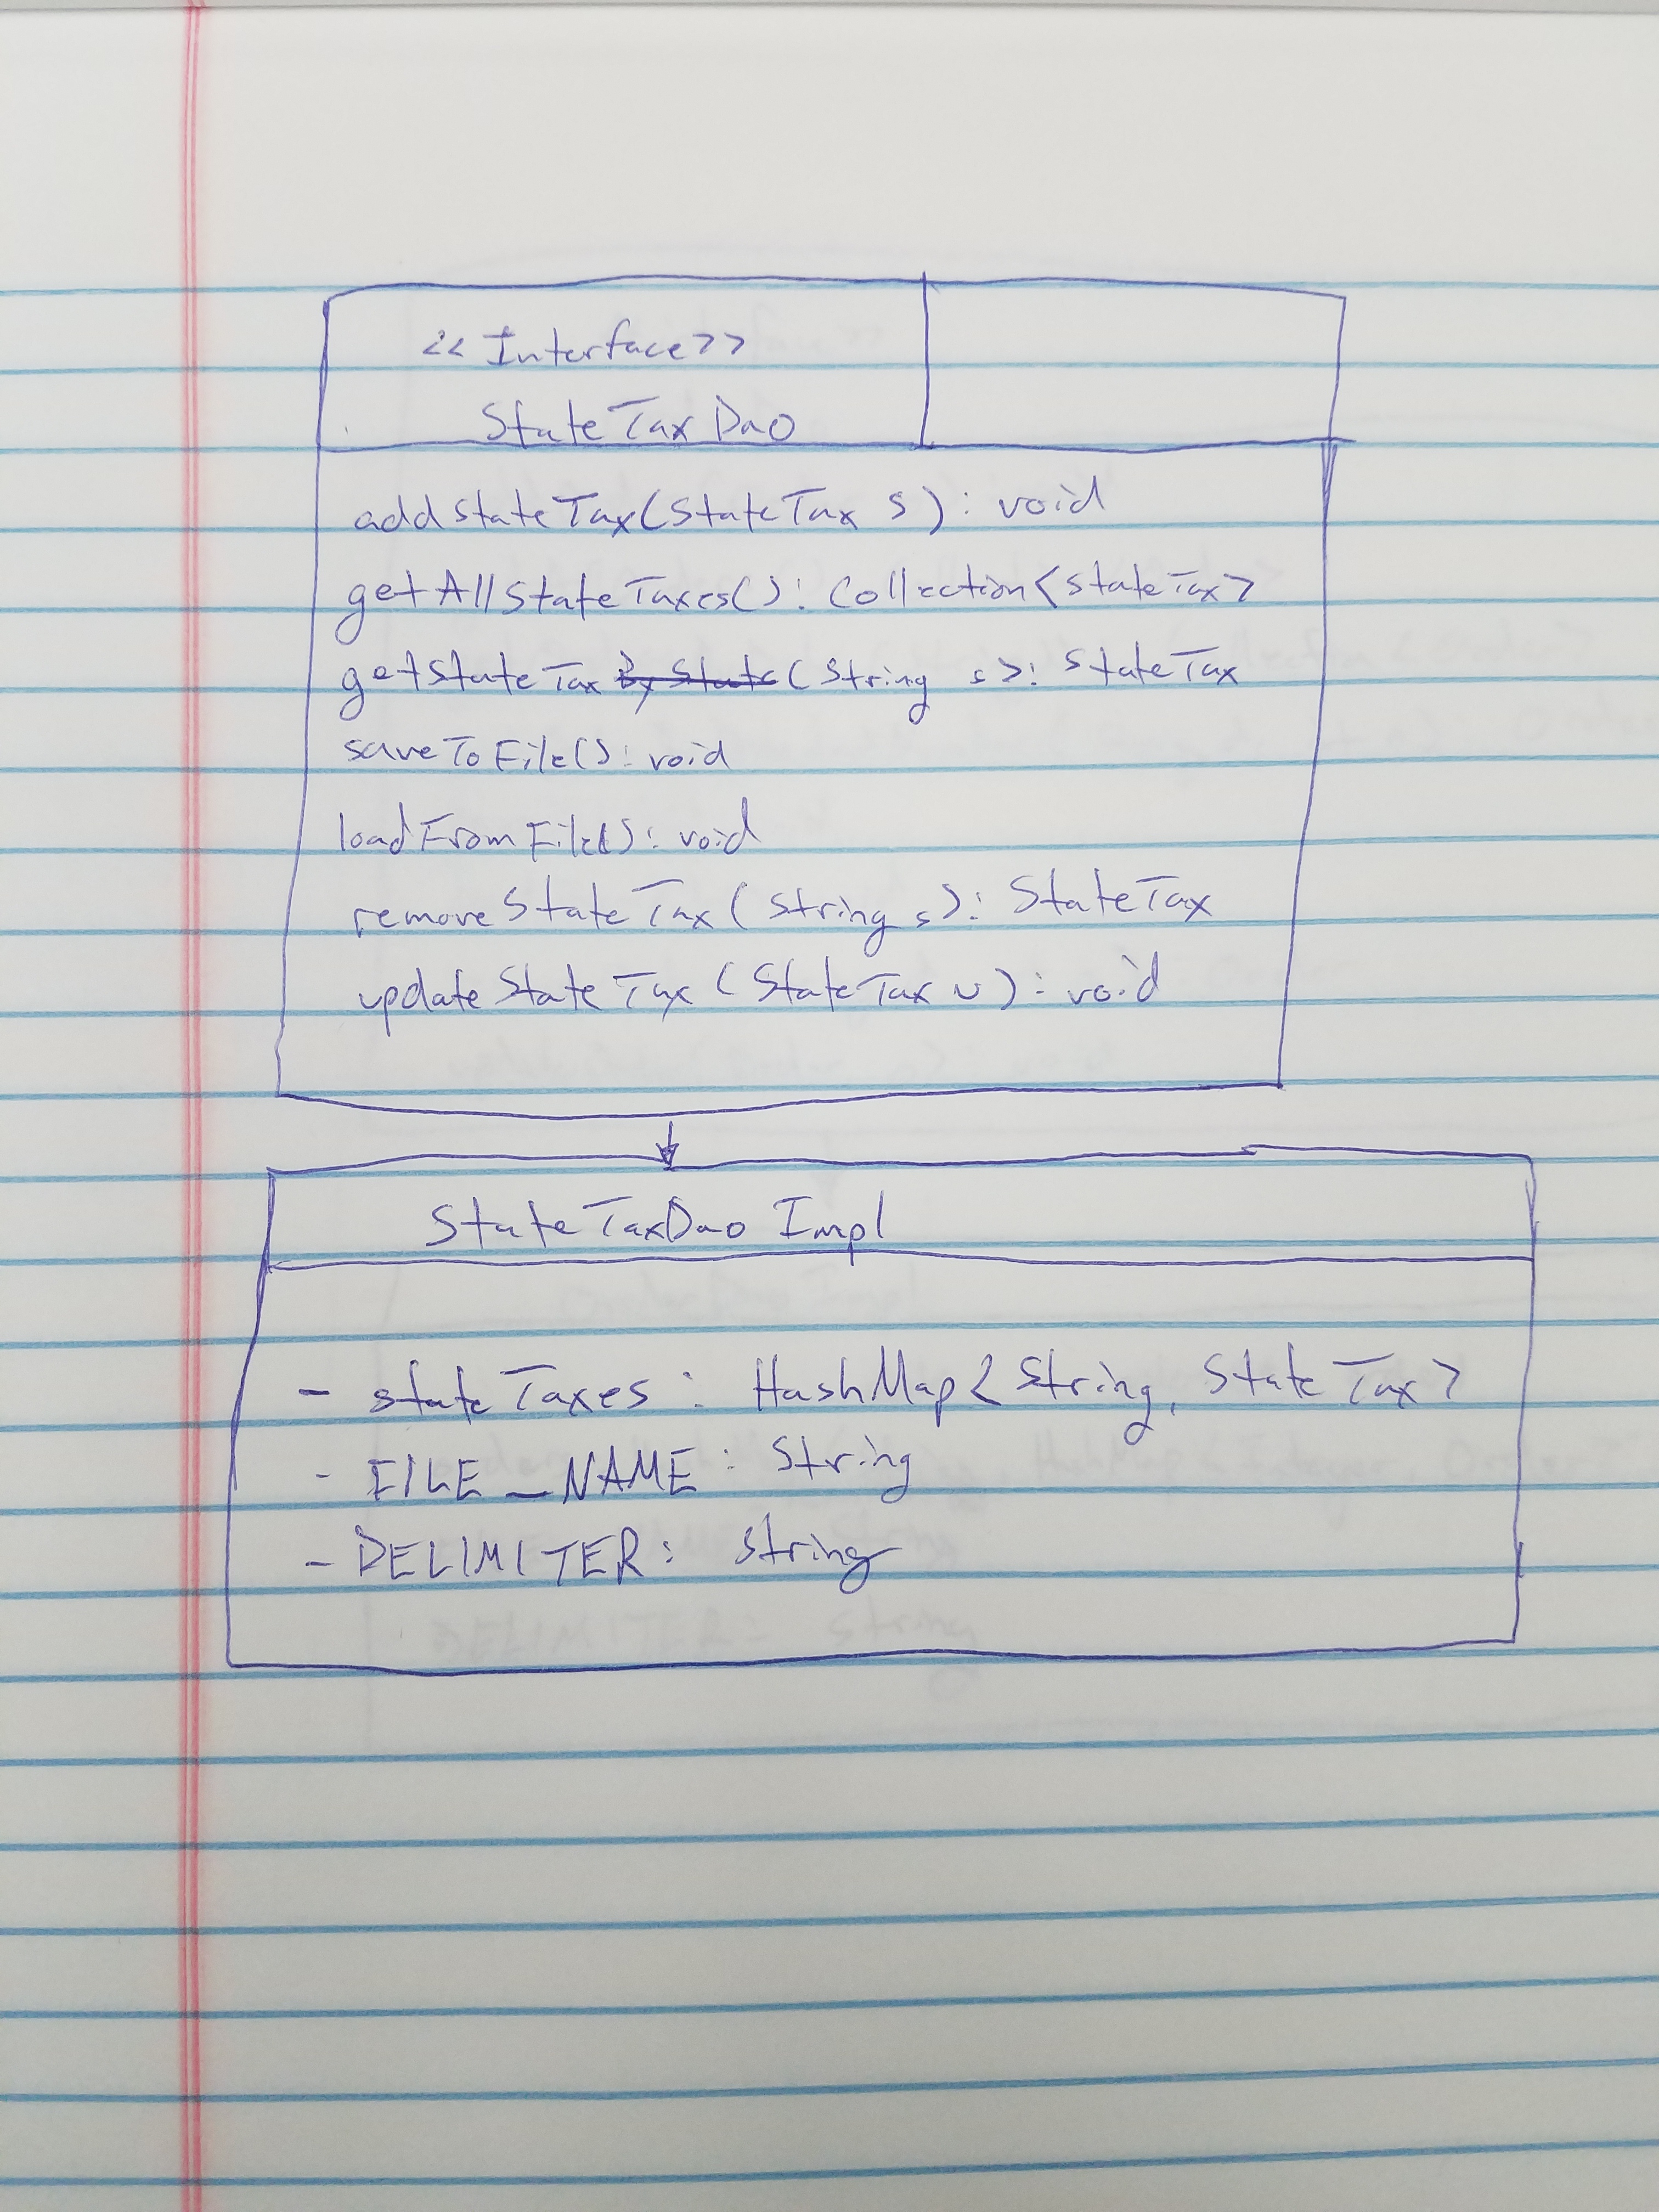 <<Interface>>
StateTaxDao
addStateTax(StateTax s): void
getAllStateTaxes(): Collection<StateTax>
getStateTax By State(String s): StateTax
saveToFile(): void
loadFromFile(): void
removeStateTax(String s): StateTax
updateStateTax(StateTax u): void
StateTaxDaoImpl
- stateTaxes: HashMap<String, StateTax>
- FILE_NAME: String
- DELIMITER: String